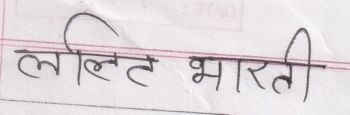 ललित भारती